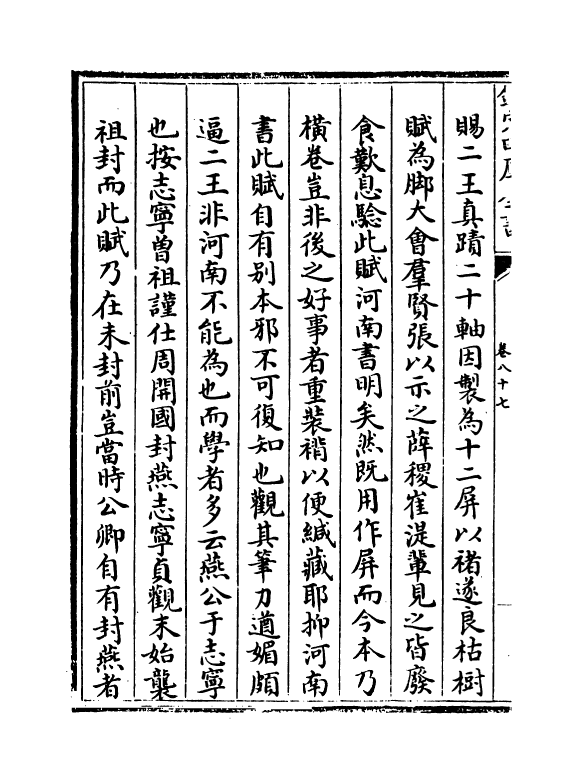 欽定四庫全書
卷八十七
賜二王真蹟二十軸因製為十二屏以褚遂良枯樹
賦為脚大會羣賢張以示之薛稷崔湜輩見之皆廢
食歎息驗此賦河南書明矣然既用作屏而今本乃
橫卷豈非後之好事者重裝褙以便緘藏耶抑河南
書此賦自有别本邪不可復知也觀其筆力遒媚頗
逼二王非河南不能為也而學者多云燕公于志寧
也按志寧曾祖謹仕周開國封燕志寧貞觀末始襲
祖封而此賦乃在未封前豈當時公卿自有封燕者